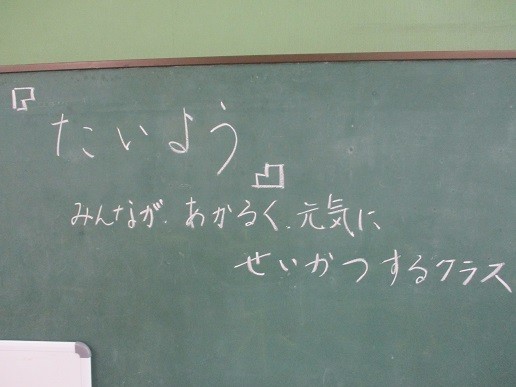 『たいよう』
みんなが、あかるく、元気に
せいかつするクラス